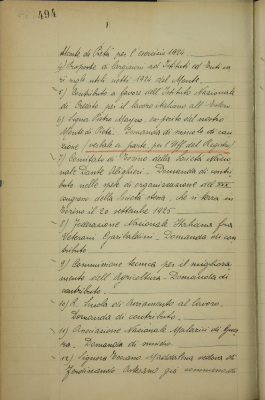 494
Monte di Pietà per l'esercizio 1924
4) Proposte di erogazioni ad Istituti ed Enti va
ri sugli utili netti 1924 del Monte.
5) Contributo a favore dell'Istituto Nazionale
di Credito per il lavoro italiano all'Estero.
6) Signor Pietro Mayno ex perito del nostro
Monte di Pietà. Domanda di aumento di
zione (vedasi a parte, per l'Uff. del Registro)
7) Comitato di Torino della Società Nazio
nale Dante Alighieri. Domanda di contri
buto nelle spese di organizzazione del XXX
congresso della Società stessa, che si terrà in
Torino il 20 settembre 1925.
8) Federazione Nazionale Italiana fra
Veterani Garibaldini. Domanda di con
tributo.
9) Commissione tecnica per il migliora
mento dell'Agricoltura. Domanda di
contributo.
10) R. Scuola di Avviamento al lavoro.
Domanda di contributo.
11) Associazione Nazionale Mutilati di Guer
ra. Domanda di sussidio.
12) Signora Maddalena vedova di
già commesso di